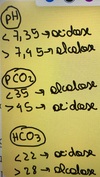 pH
< 7,35 → acidose
> 7,45 → alcalose
PCO2
< 35 → alcalose
> 45 → acidose
HCO3
< 22 → acidose
> 28 → alcalose